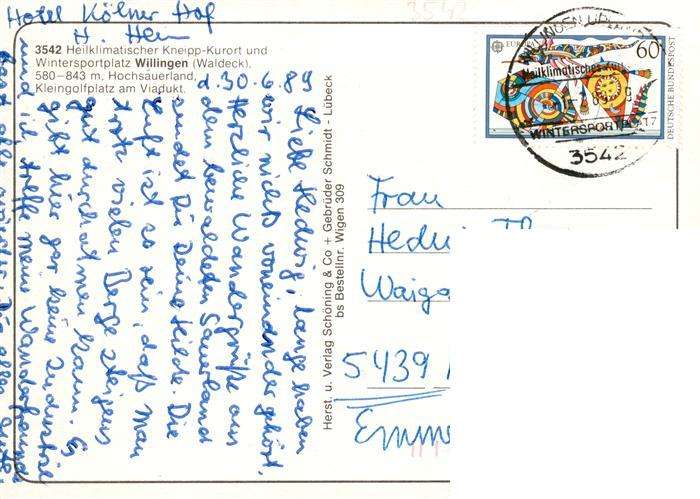 Hotel Kölner Hof
H. Hein
3542 Heilklimatischer Kneipp-Kurort und
Wintersportplatz Willingen (Waldeck),
580–843 m, Hochsauerland,
Kleingolfplatz am Viadukt.
d. 30. 6. 89
Liebe Hedwig, lange haben
wir nichts voneinander gehört.
Herzliche Wandergrüße aus
dem bewaldeten Sauerland
sendet Dir Deine Hilde. Die
Luft ist so rein, daß man
trotz vielen Berge steigens
gut durchatmen kann. Es
gibt hier gar keine Industrie
und ich treffe meine Wanderfreunde
Herst. u. Verlag Schöning & Co + Gebrüder Schmidt - Lübeck
bs Bestellnr. Wigen 309
EUROPA
60
DEUTSCHE BUNDESPOST
Heilklimatisches
WINTERSPORTPLATZ
3542
Frau
Hedwi
Waiga
5439
Emm
3542